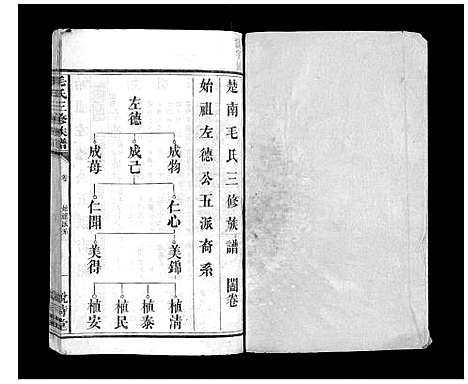 楚南毛氏三修族譜
卷
始祖左德公五派裔系
左德
成物
成己
成苺
仁心
仁聞
美錦
美得
植清
植泰
植民
植安
毛氏三修族譜